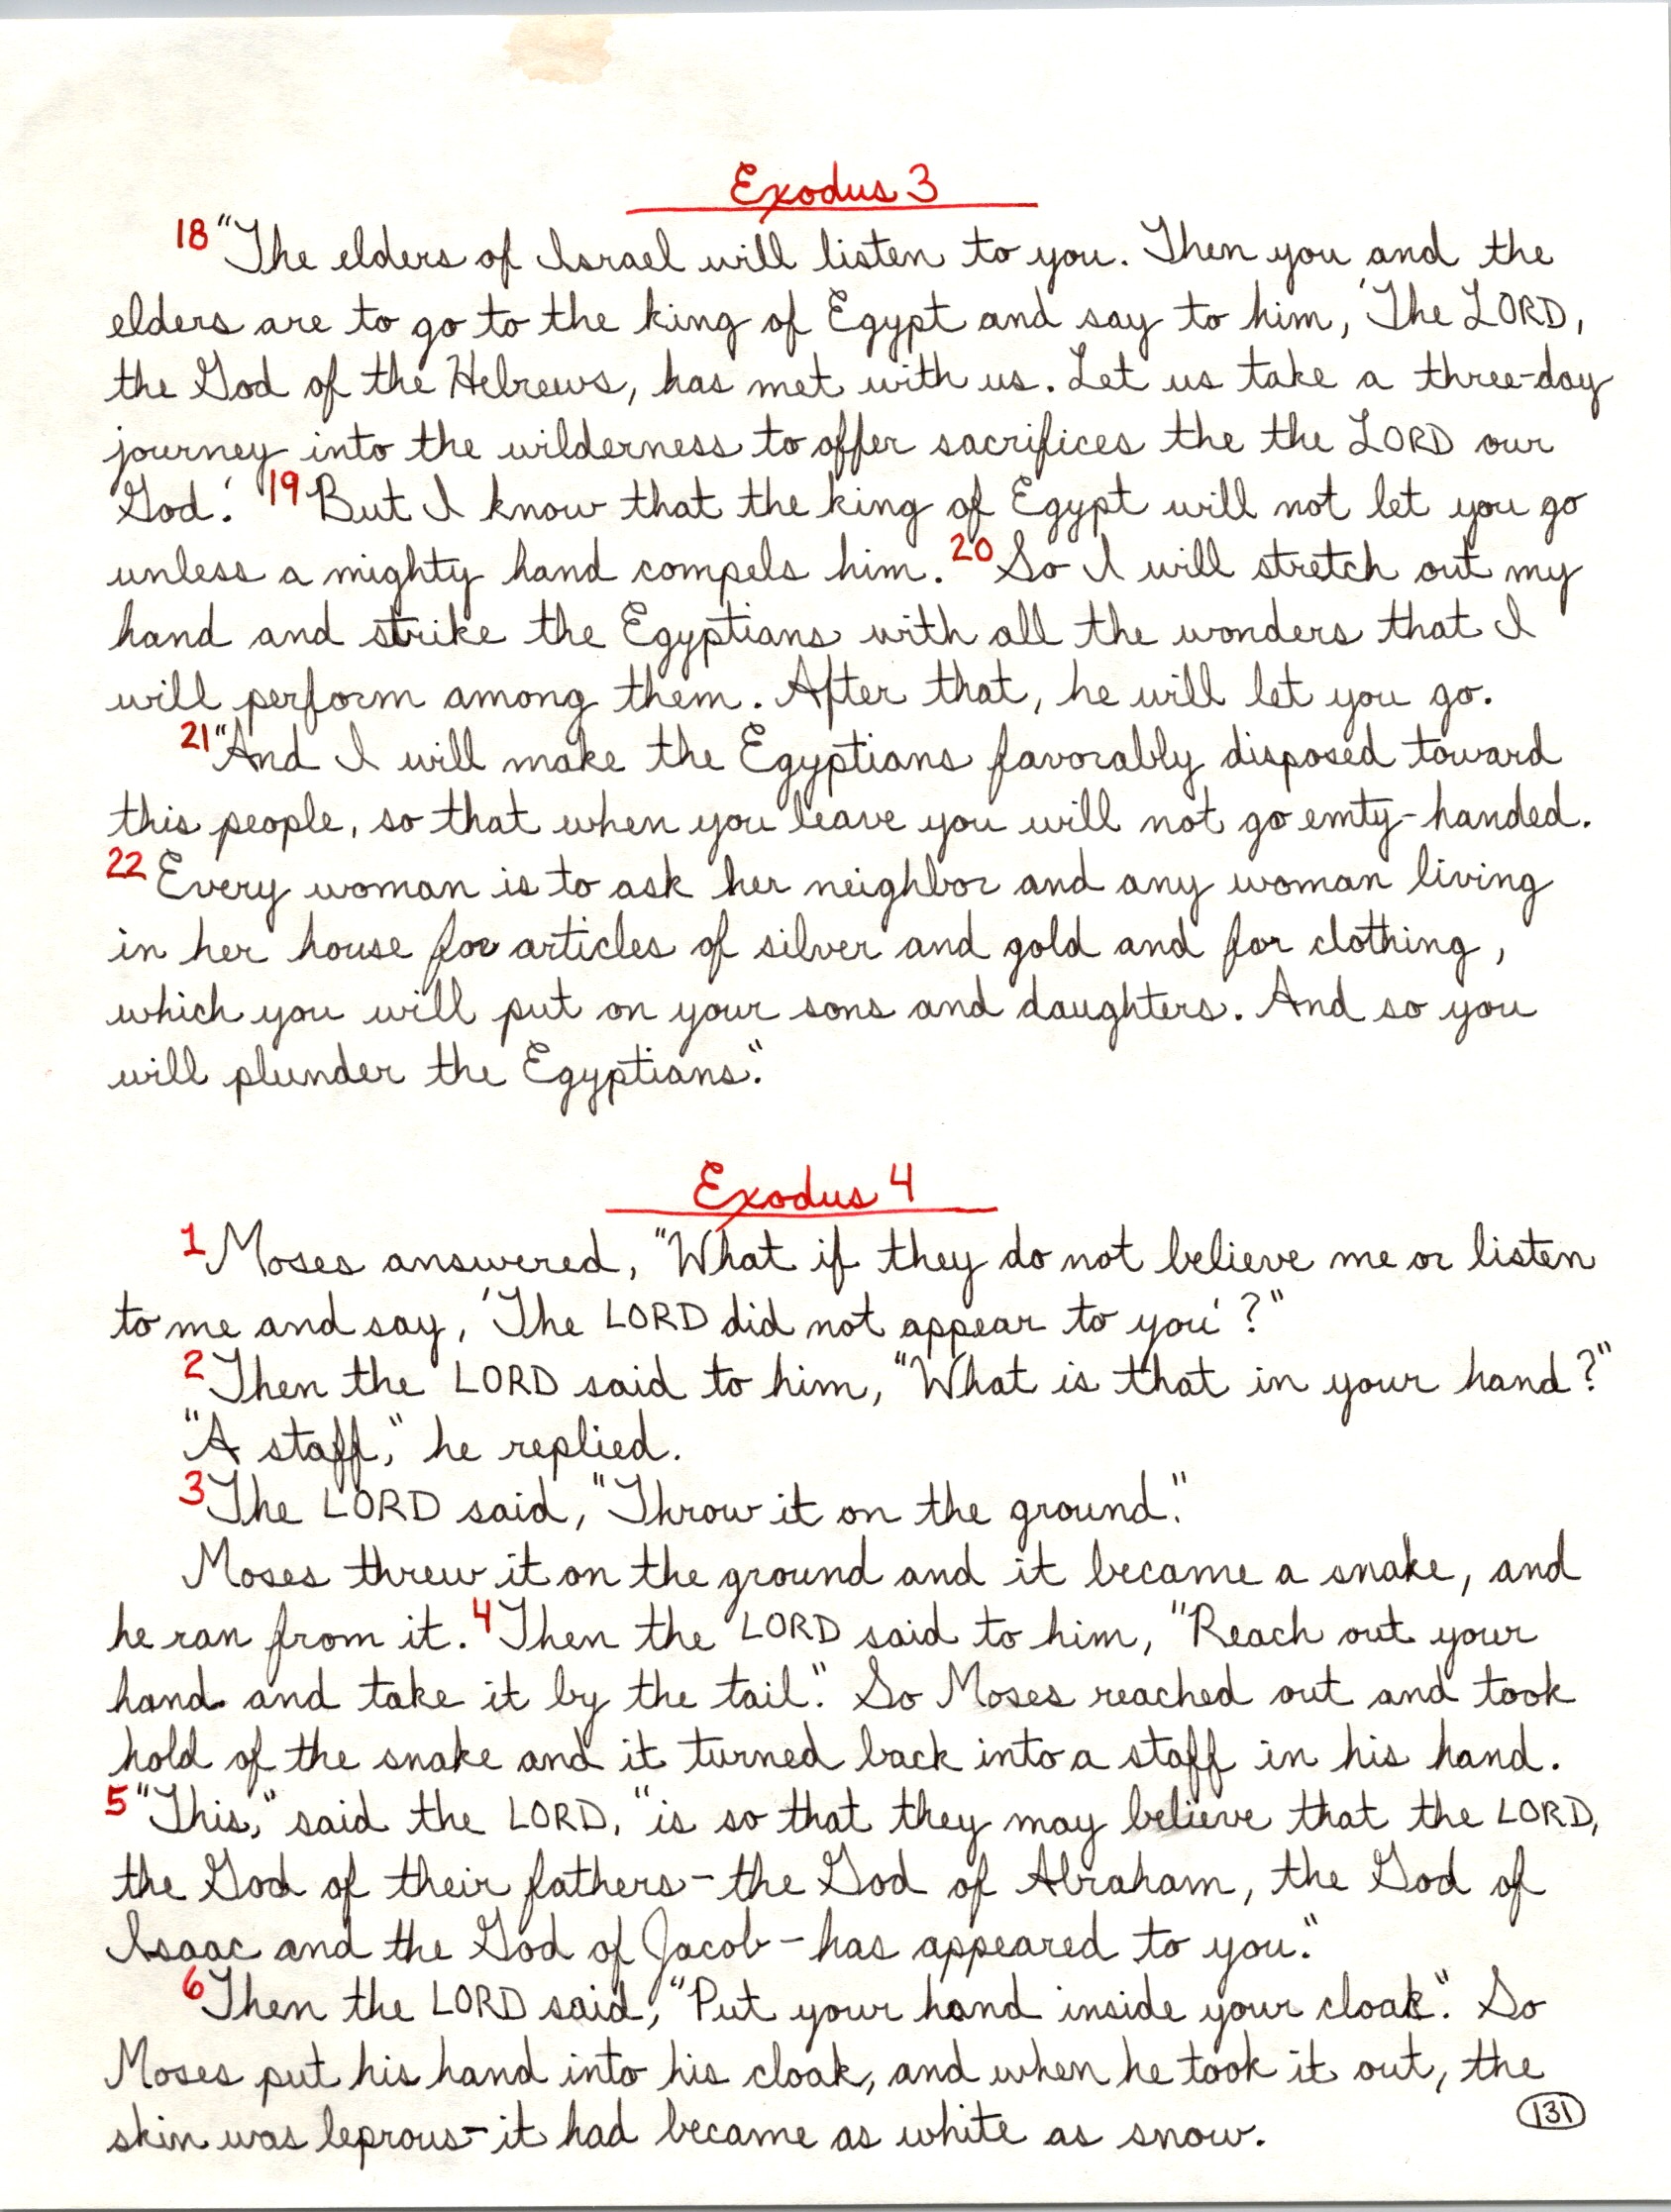 Exodus 3
18 "The elders of Israel will listen to you. Then you and the
elders are to go to the king of Egypt and say to him, 'The LORD,
the God of the Hebrews, has met with us. Let us take a three-day
journey into the wilderness to offer sacrifices the the LORD our
God.' 19 But I know that the king of Egypt will not let you go
unless a mighty hand compels him. 20 So I will stretch out my
hand and strike the Egyptians with all the wonders that I
will perform among them. After that, he will let you go.
21 "And I will make the Egyptians favorably disposed toward
this people, so that when you leave you will not go emty-handed.
22 Every woman is to ask her neighbor and any woman living
in her house for articles of silver and gold and for clothing,
which you will put on your sons and daughters. And so you
will plunder the Egyptians."
Exodus 4
1 Moses answered, "What if they do not believe me or listen
to me and say, 'The LORD did not appear to you'?"
2 Then the LORD said to him, "What is that in your hand?"
"A staff," he replied.
3 The LORD said, "Throw it on the ground."
Moses threw it on the ground and it became a snake, and
he ran from it. 4 Then the LORD said to him, "Reach out your
hand and take it by the tail." So Moses reached out and took
hold of the snake and it turned back into a staff in his hand.
5 "This," said the LORD, "is so that they may believe that the LORD,
the God of their fathers - the God of Abraham, the God of
Isaac and the God of Jacob - has appeared to you."
6 Then the LORD said, "Put your hand inside your cloak." So
Moses put his hand into his cloak, and when he took it out, the
skin was leprous - it had became as white as snow.
131